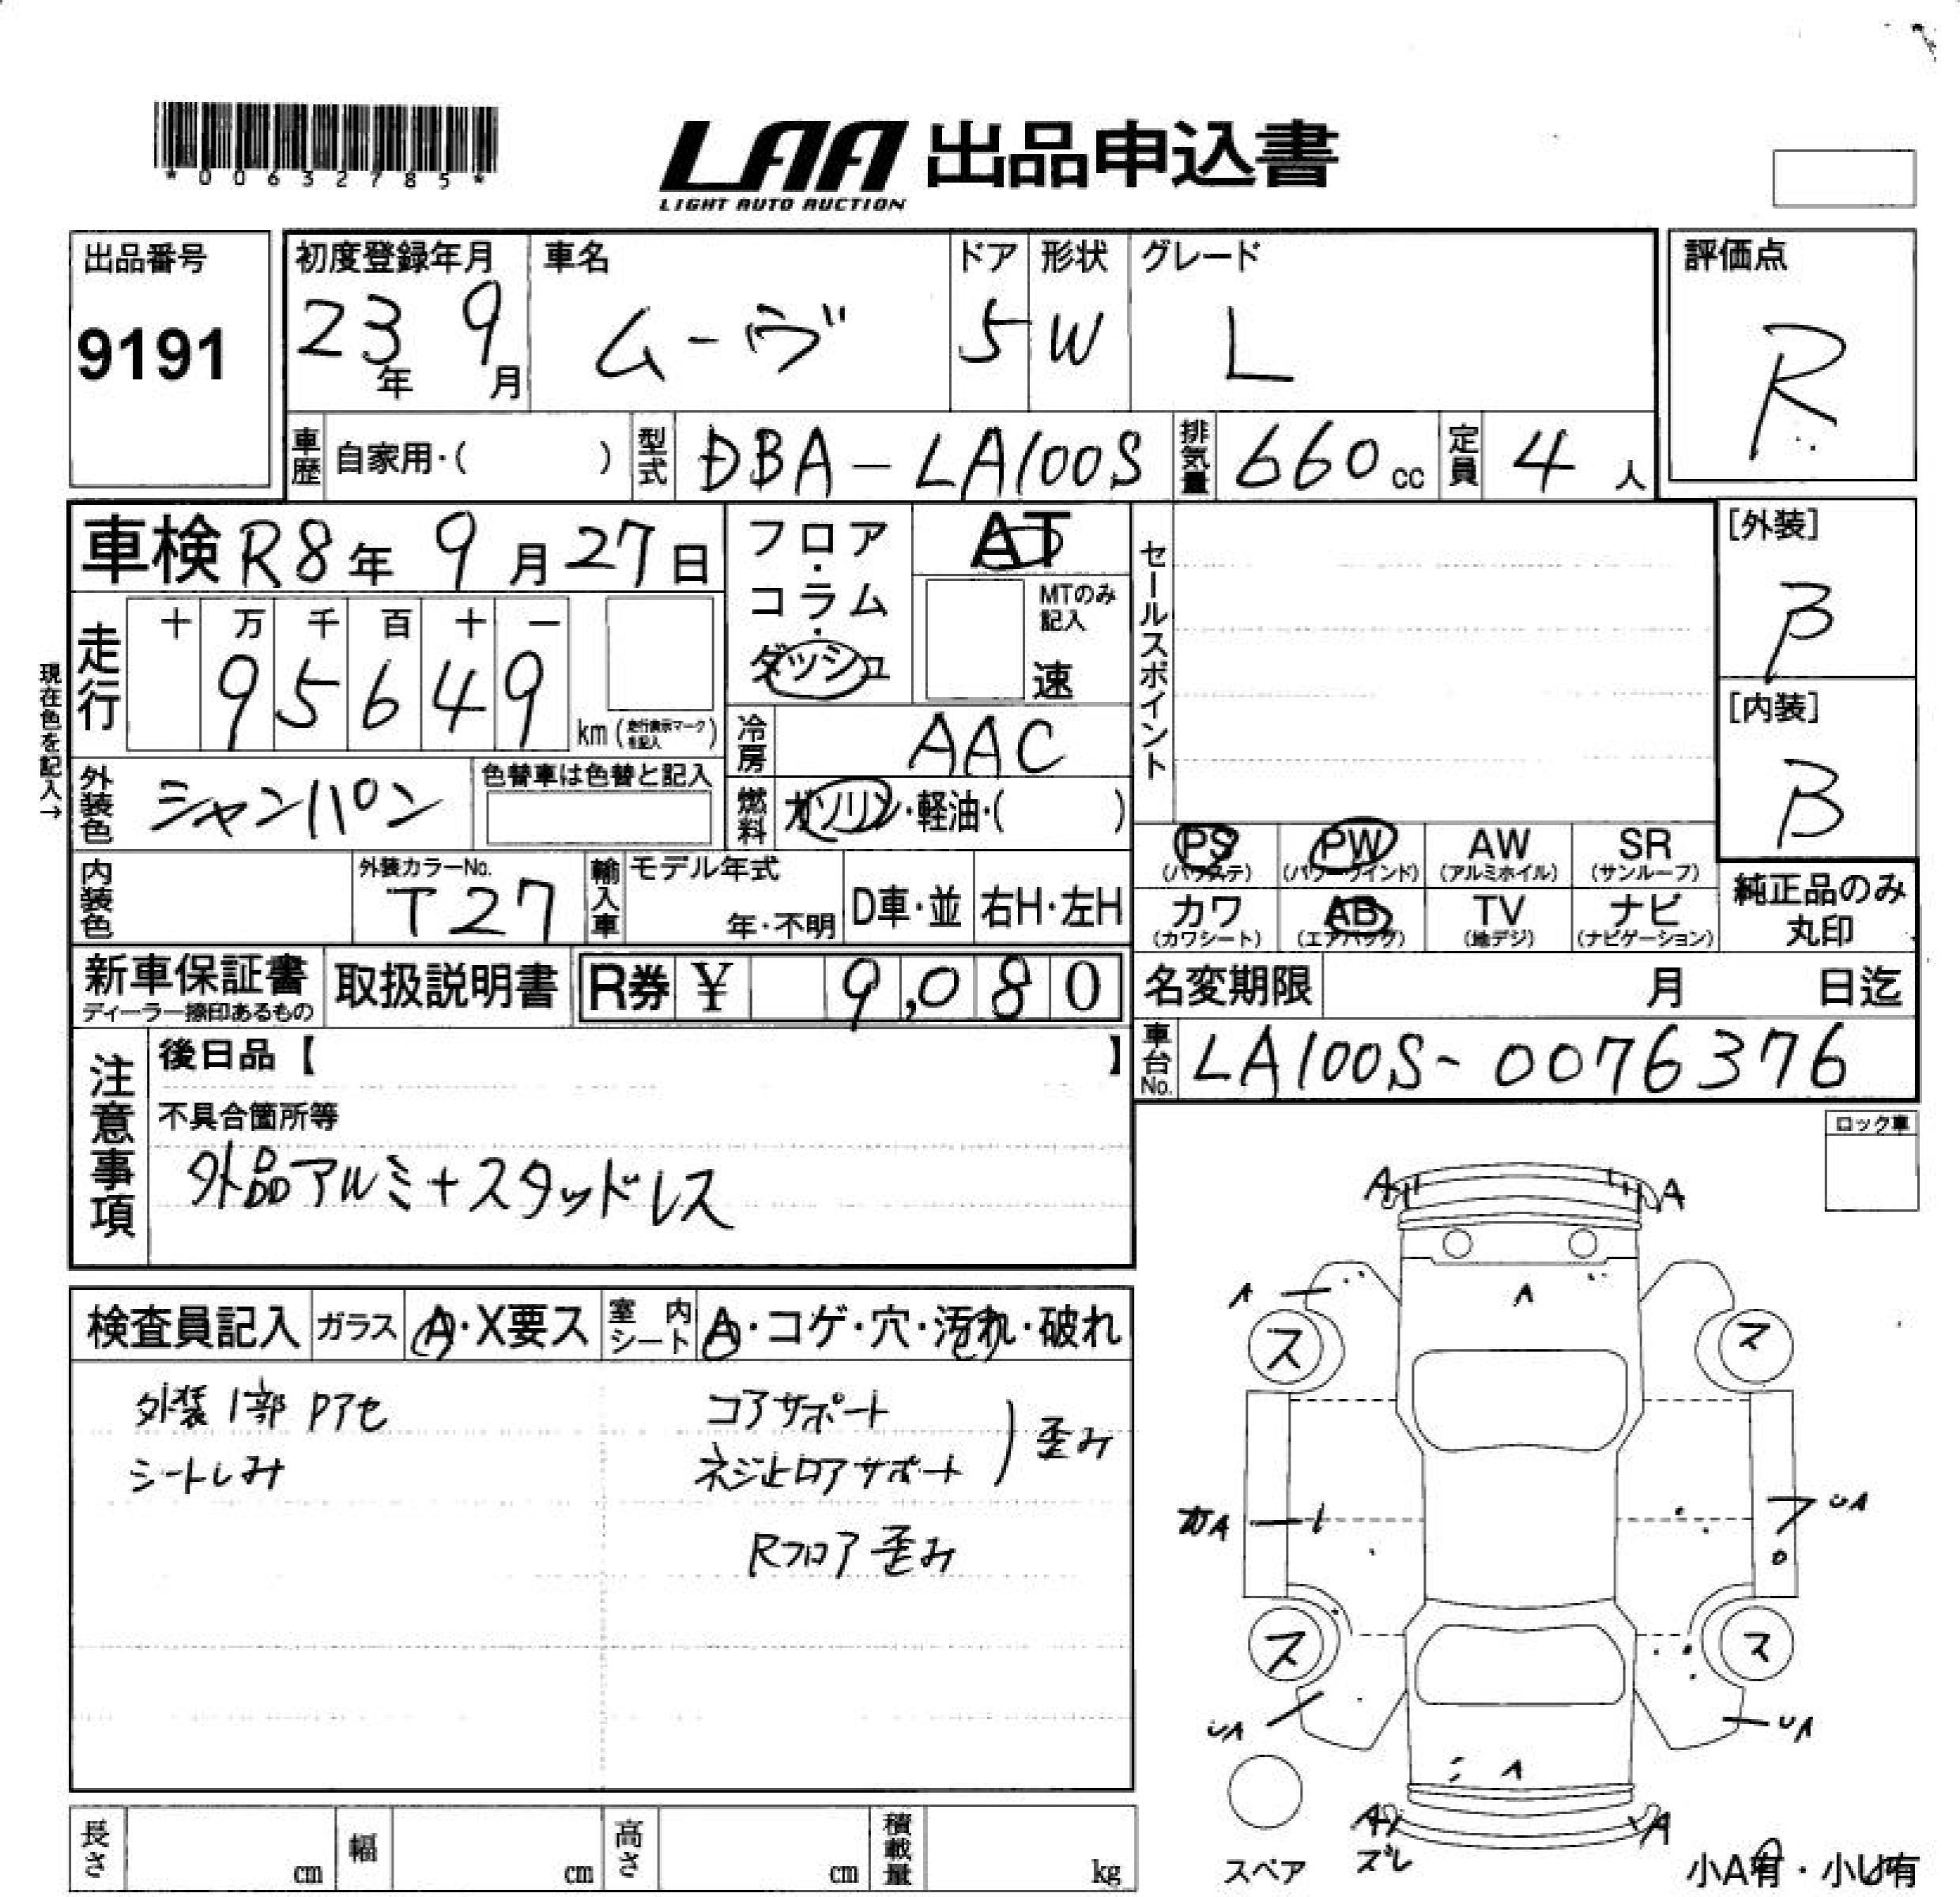 *00632785*
LAA 出品申込書
LIGHT AUTO AUCTION
出品番号
9191
初度登録年月
23年 9月
車名
ムーヴ
ドア
5
形状
W
グレード
L
評価点
R
車歴 自家用・( )
型式 DBA-LA100S
排気量 660cc
定員 4人
車検 R8年 9月27日
現在色を記入→
走行
十 万 千 百 十 一
95649
km(走行表示マークを記入)
フロア・コラム・ダッシュ
AT
MTのみ記入
速
冷房 AAC
燃料 ガソリン・軽油・( )
外装色 シャンパン
色替車は色替と記入
内装色
外装カラーNo.
T27
輸入車
モデル年式
年・不明
D車・並
右H・左H
セールスポイント
[外装]
B
[内装]
B
PS
(パワステ)
PW
(パワーウインド)
AW
(アルミホイル)
SR
(サンルーフ)
カワ
(カワシート)
AB
(エアバッグ)
TV
(地デジ)
ナビ
(ナビゲーション)
純正品のみ
丸印
新車保証書
ディーラー捺印あるもの
取扱説明書
R券 ¥ 9,080
名変期限 月 日迄
車台No. LA100S-0076376
注意事項
後日品【 】
不具合箇所等
外品アルミ+スタッドレス
ロック車
検査員記入
ガラス A・X要ス
室内シート A・コゲ・穴・汚れ・破れ
外装1部Pアセ
シートしみ
コアサポート
ネジ止ロアサポート
) 歪み
Rフロア歪み
A A
A A
ス ス
カA UA
ス ス
UA UA
A
A A
ズレ
スペア
小A有・小U有
長さ cm
幅 cm
高さ cm
積載量 kg